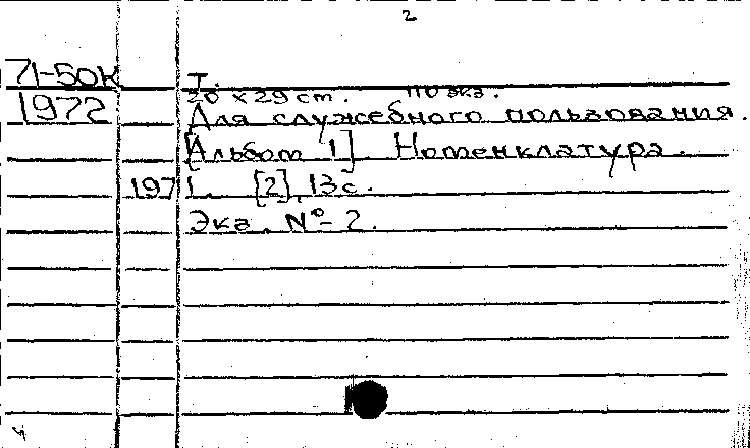 2
71-50к Т.
20 x 29 cm. 110 экз.
1972 Для служебного пользования.
[Альбом 1] Номенклатура.
1971. [2], 13 с.
Экз. № 2.
4